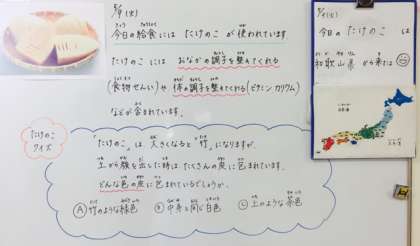 5/9(火)
今日の給食には たけのこ が 使われています。
たけのこ には おなかの調子を整えてくれる
(食物せんい)や 体の調子を整えてくれる(ビタミン カリウム)
などが 含まれています。
たけのこ
クイズ
「たけのこ」は 大きくなると「竹」になりますが、
土から顔を出した時は、たくさんの皮に包まれています。
どんな色の皮に包まれているでしょうか。
Ⓐ竹のような緑色 Ⓑ中身と同じ白色 Ⓒ土のような茶色
5/9(火)
今日の たけのこ は
和歌山県 から来たよ